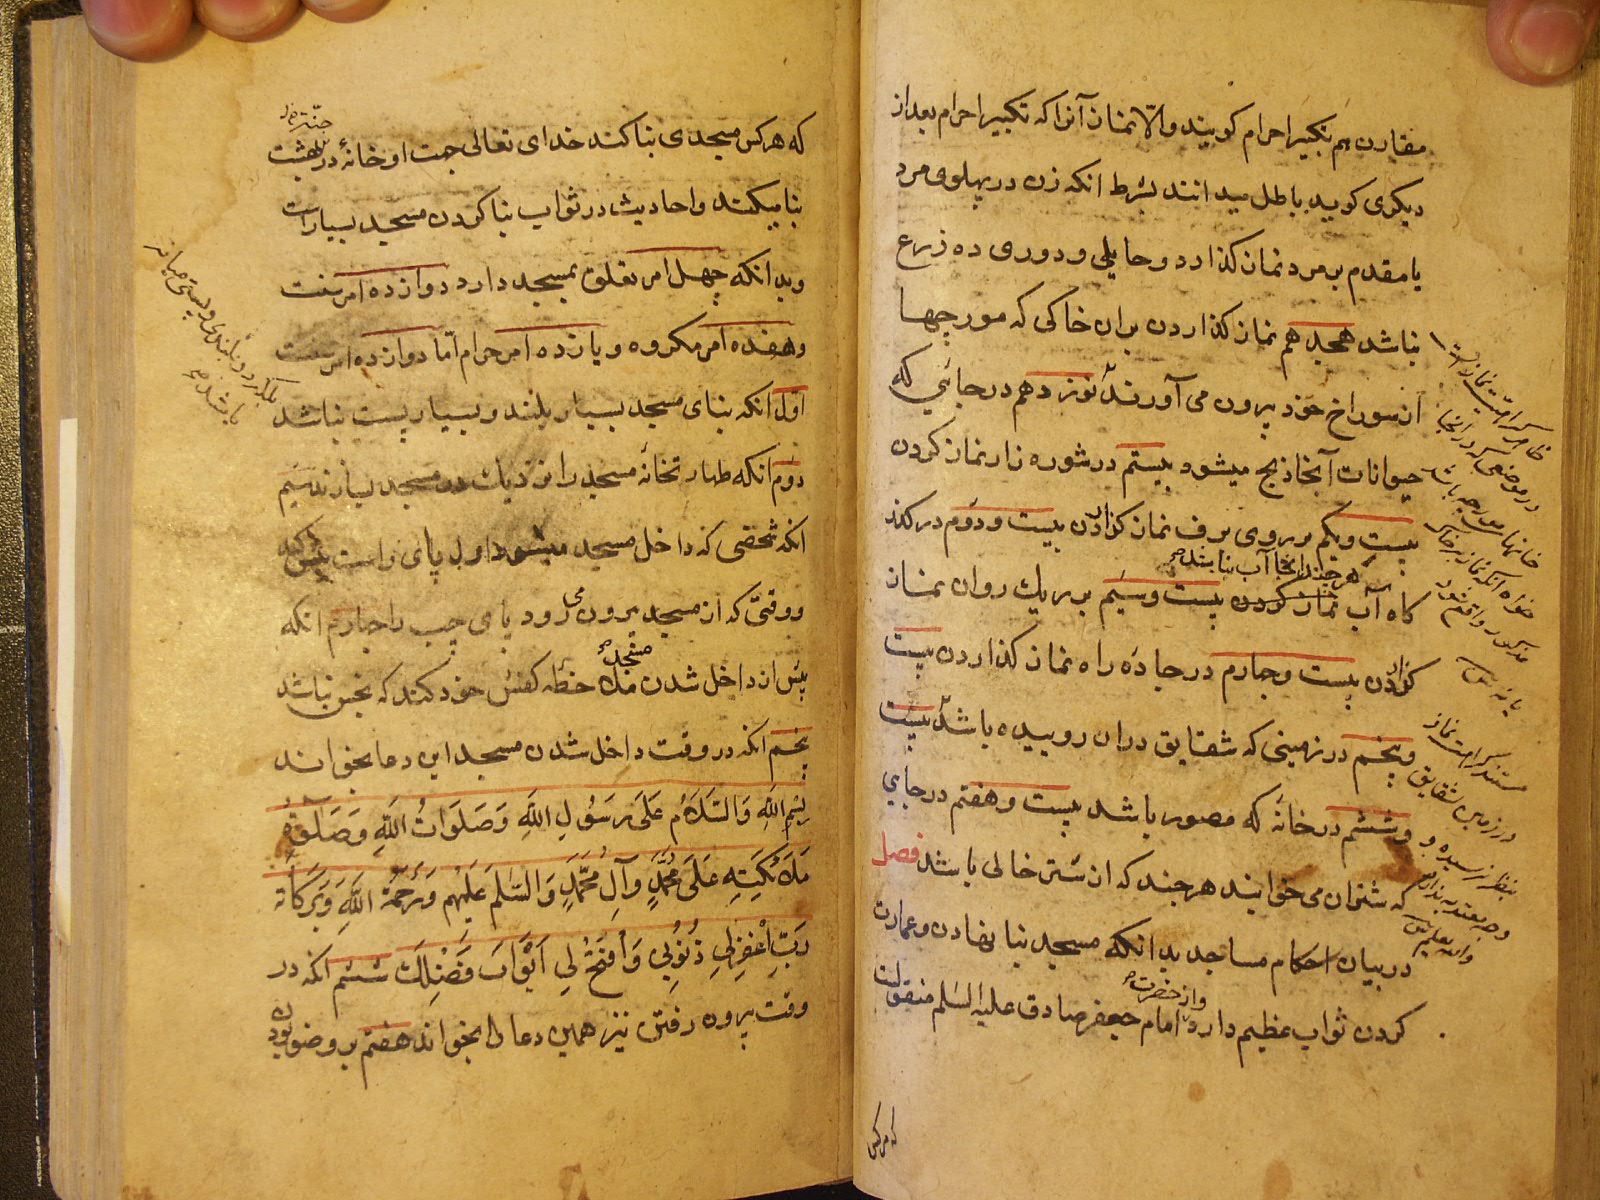 مقارن هم تکبیر احرام کویند والّا نماز آنرا که تکبیر احرام بعد از
دیکری کوید باطل میدانند بشرط انکه زن در پهلوی مرد
یا مقدم بر مرد نماز کذارد و حایلی و دوری ده ذرع
نباشد هجدهم نماز کذاردن بران خاکی که مورچها
از سوراخ خود بیرون می آورند نوزدهم در جائی که
حیوانات آنجا ذبح میشود بیستم در شوره زار نماز کردن
بیست ویکم بر روی برف نماز کزاردن بیست و دوم در کذر
هر چند در انجا آب نباشد
کاه آب نماز کردن بیست وسیم بر ریك روان نماز
کزاردن بیست وچهارم در جاده راه نماز کذاردن بیست
وپنجم در زمینی که شقایق دران روییده باشد بیست
وششم در خانۀ که مصور باشد بیست وهفتم در جای
که شتران می خوابند هر چند که از شتر خالی باشد فصل
در بیان احکام مساجد بدانکه مسجد بنا نهادن و عمارت
کردن ثواب عظیم دارد واز حضرت امام جعفر صادق علیه السلم منقولست
ظاهر کراهت نماز است
در موضعی که در انجا
خانهای مورچه باشد
خواه انکه نماز بر خاک
مذکور واقع شود
یا نه
مستند کراهت نماز
در زمین شقایق
بنظر نرسیده و
وجه معتد به ندارد
والله یعلم
که هرکس
که هرکس مسجدی بنا کند خدای تعالی جهت او خانۀ در بهشت
بنا میکند و احادیث در ثواب بنا کردن مسجد بسیار است
وبدانکه چهل امر تعلق بمسجد دارد دوازده امر سنت
وهفده امر مکروه و یازده امر حرام امّا دوازده امر سنت
اوّل انکه بنای مسجد بسیار بلند و بسیار پست نباشد
دوم انکه طهارتخانۀ مسجد را نزدیك در مسجد بسازند سیم
انکه شخصی که داخل مسجد میشود اول پای راست پیش کند
و وقتی که از مسجد بیرون می رود پای چپ را چهارم انکه
پیش از داخل شدن مسجد ملاحظه کفش خود کند که نجس نباشد
پنجم انکه در وقت داخل شدن مسجد این دعا بخواند
بِسْمِ اللَّهِ وَالسَّلَامُ عَلَى رَسُولِ اللَّهِ وَصَلَوَاتُ اللَّهِ وَصَلَوةُ
مَلَائِكَتِهِ عَلَى مُحَمَّدٍ وَآلِ مُحَمَّدٍ وَالسَّلَمُ عَلَيْهِم وَرَحْمَةُ اللَّهِ وَبَرَكَاتُه
رَبِّ اغْفِرْ لِي ذُنُوبِي وَافْتَحْ لِي اَبْوَابَ فَضْلِكَ ششم انکه در
وقت بیرون رفتن نیز همین دعا را بخواند هفتم بر وضو بودن
بلکه در بلندی و پستی میانه
باشد